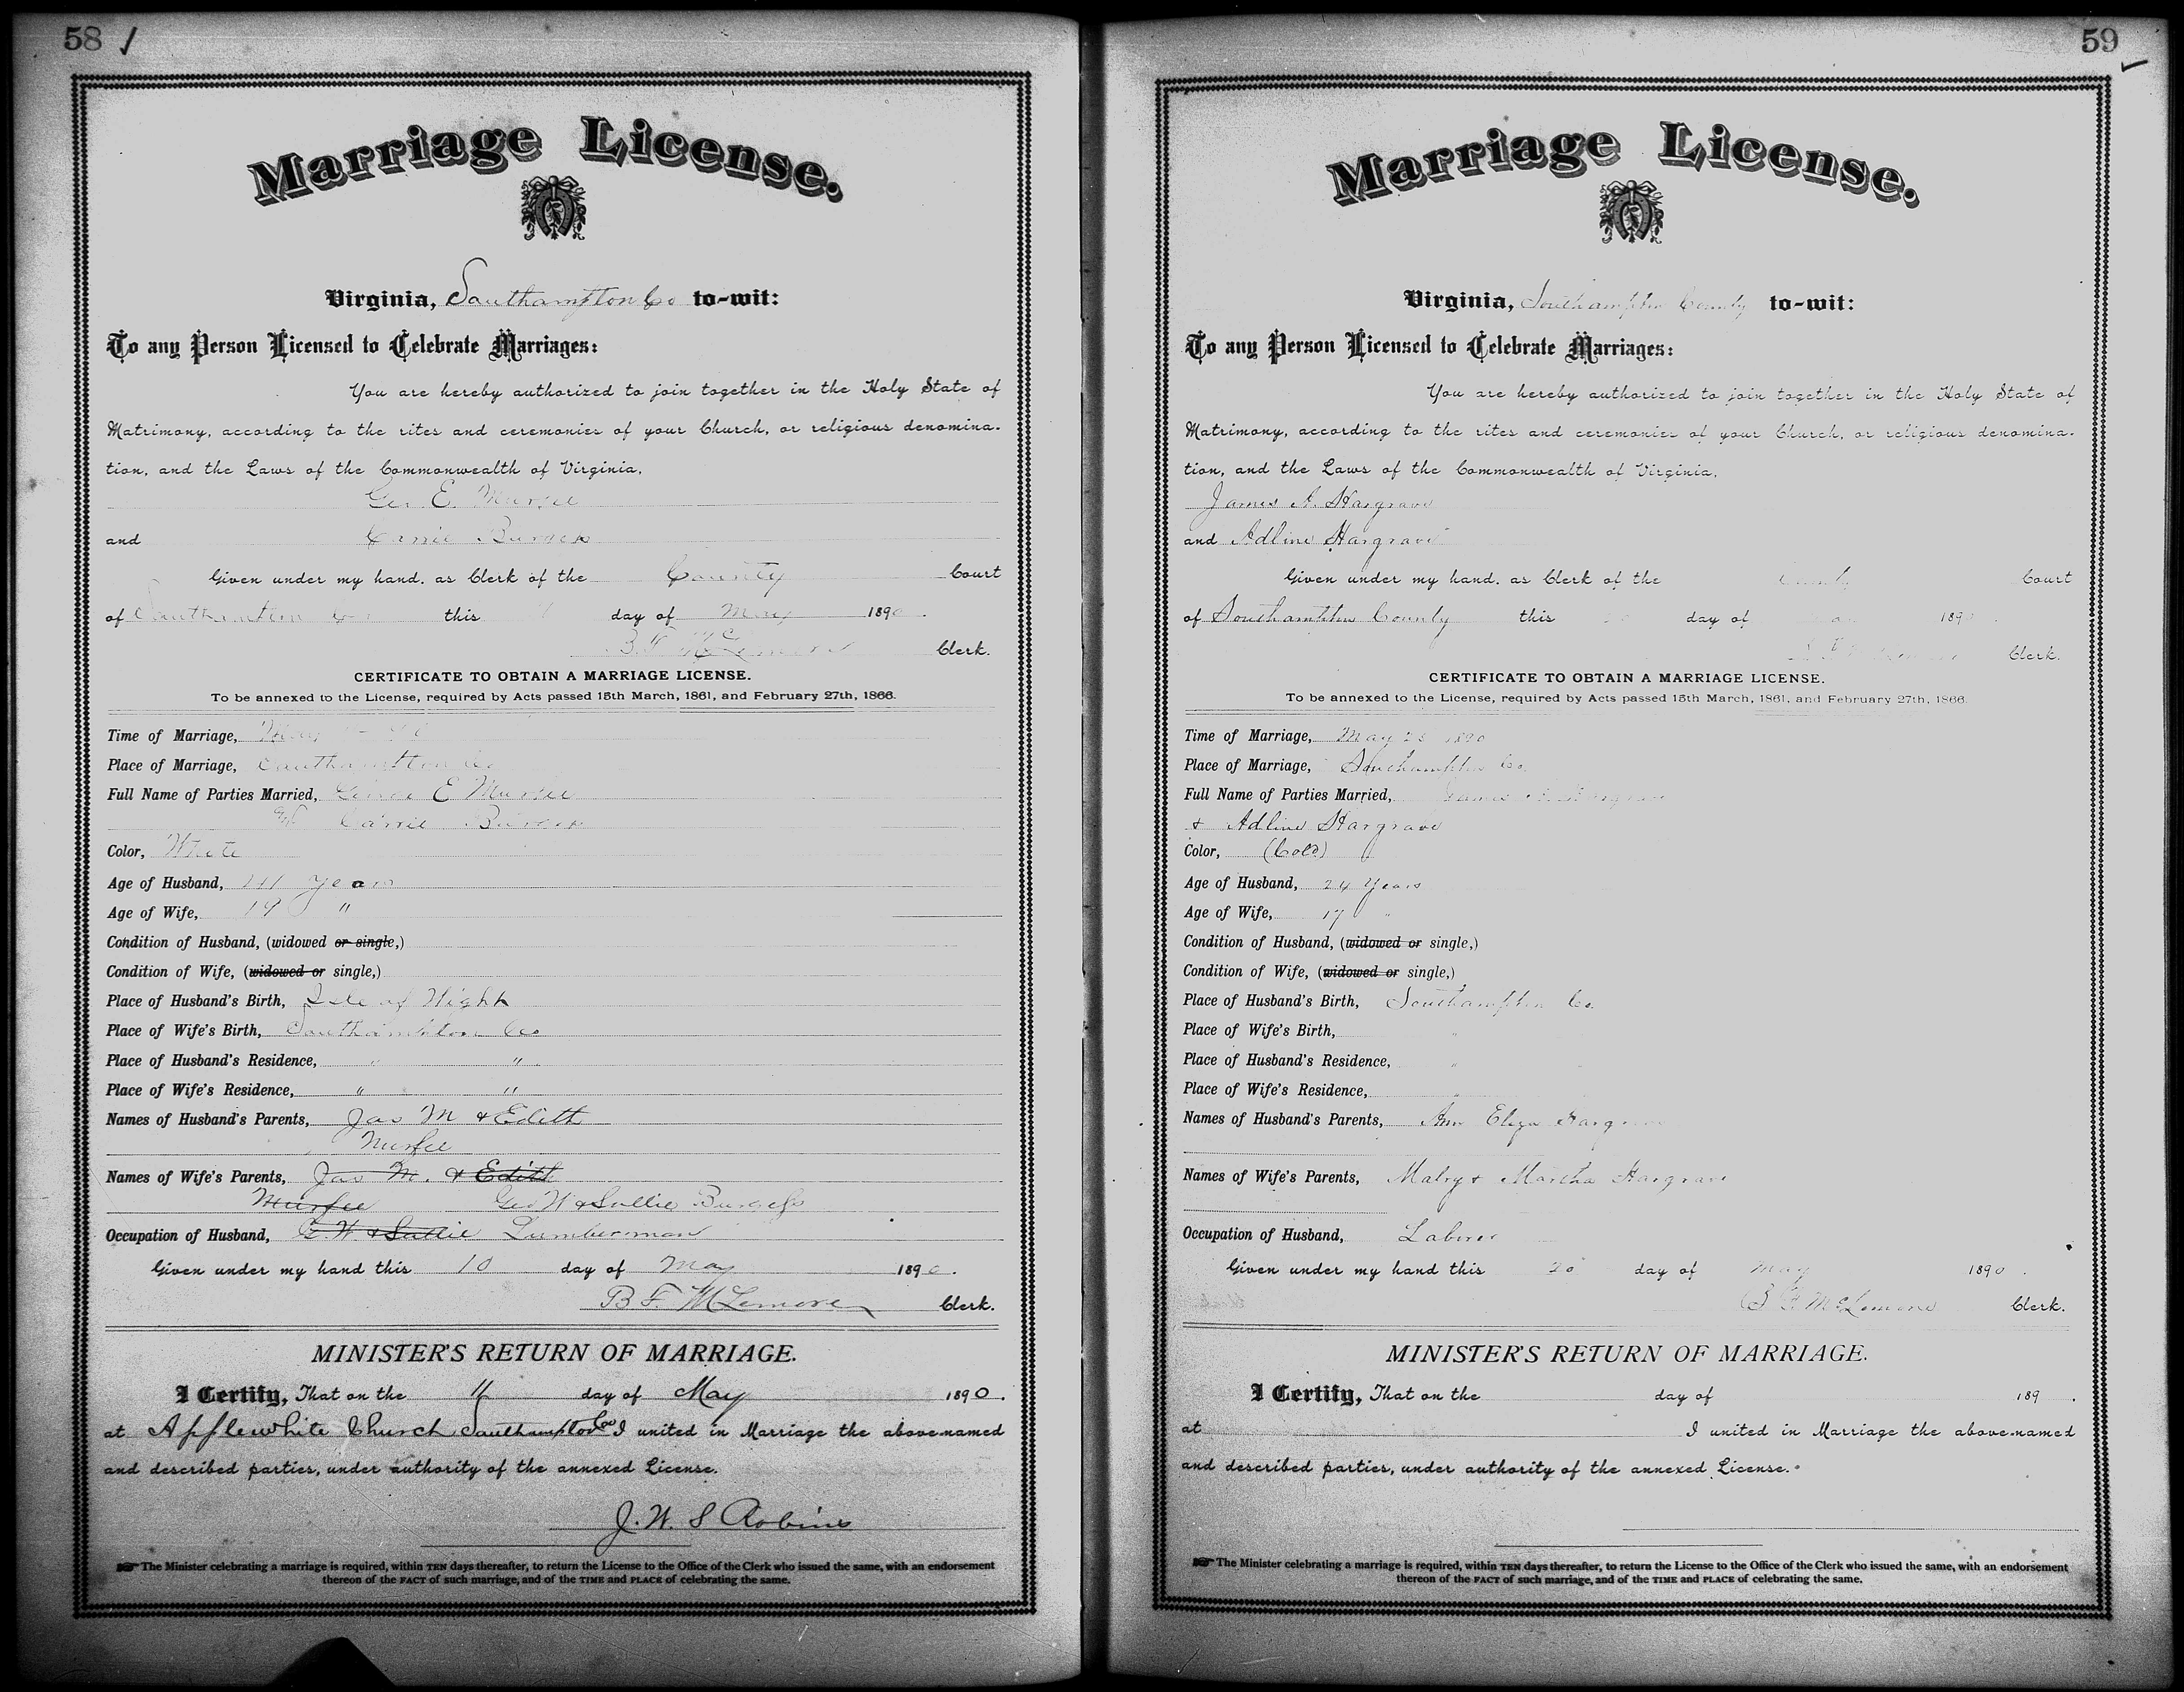 58
Marriage License.
Virginia, Southampton Co to-wit:
To any Person Licensed to Celebrate Marriages:
You are hereby authorized to join together in the Holy State of
Matrimony, according to the rites and ceremonies of your Church, or religious denomina-
tion, and the Laws of the Commonwealth of Virginia,
Geo E. Murfee
and Carrie Burgess
Given under my hand, as Clerk of the County Court
of Southampton Co this day of May 1890.
B. F. McLemore Clerk.
CERTIFICATE TO OBTAIN A MARRIAGE LICENSE.
To be annexed to the License, required by Acts passed 15th March, 1861, and February 27th, 1866.
Time of Marriage, May
Place of Marriage, Southampton Co
Full Name of Parties Married, George E Murfee
Carrie Burgess
Color, White
Age of Husband, years
Age of Wife, 19 "
Condition of Husband, (widowed or single,)
Condition of Wife, (widowed or single,)
Place of Husband's Birth, Isle of Wight
Place of Wife's Birth, Southampton Co
Place of Husband's Residence, " "
Place of Wife's Residence, " "
Names of Husband's Parents, Jas M & Edith
Murfee
Names of Wife's Parents, Jas M. & Edith
Murfee Geo W & Sallie Burgess
Occupation of Husband, G. W. & Sallie Lumberman
Given under my hand this 10 day of May 1890.
B. F. McLemore Clerk.
MINISTER'S RETURN OF MARRIAGE.
I Certify, That on the 11 day of May 1890.
at Applewhite Church Southampton Co I united in Marriage the above-named
and described parties, under authority of the annexed License.
J. W. S Robins
The Minister celebrating a marriage is required, within TEN days thereafter, to return the License to the Office of the Clerk who issued the same, with an endorsement
thereon of the FACT of such marriage, and of the TIME and PLACE of celebrating the same.
59
Marriage License.
Virginia, Southampton County to-wit:
To any Person Licensed to Celebrate Marriages:
You are hereby authorized to join together in the Holy State of
Matrimony, according to the rites and ceremonies of your Church, or religious denomina-
tion, and the Laws of the Commonwealth of Virginia,
James A. Hargrave
and Adline Hargrave
Given under my hand, as Clerk of the County Court
of Southampton County this day of 189
Clerk.
CERTIFICATE TO OBTAIN A MARRIAGE LICENSE.
To be annexed to the License, required by Acts passed 15th March, 1861, and February 27th, 1866.
Time of Marriage, May 1890
Place of Marriage, Southampton Co.
Full Name of Parties Married, James A. Hargrave
& Adline Hargrave
Color, (Cold)
Age of Husband, 24 Years
Age of Wife, 17 "
Condition of Husband, (widowed or single,)
Condition of Wife, (widowed or single,)
Place of Husband's Birth, Southampton Co.
Place of Wife's Birth, "
Place of Husband's Residence, "
Place of Wife's Residence, "
Names of Husband's Parents, Ann Eliza Hargrave
Names of Wife's Parents, Malry & Martha Hargrave
Occupation of Husband, Laborer
Given under my hand this 20 day of May 1890.
B F McLemore Clerk.
MINISTER'S RETURN OF MARRIAGE.
I Certify, That on the day of 189 .
at I united in Marriage the above-named
and described parties, under authority of the annexed License.
The Minister celebrating a marriage is required, within TEN days thereafter, to return the License to the Office of the Clerk who issued the same, with an endorsement
thereon of the FACT of such marriage, and of the TIME and PLACE of celebrating the same.